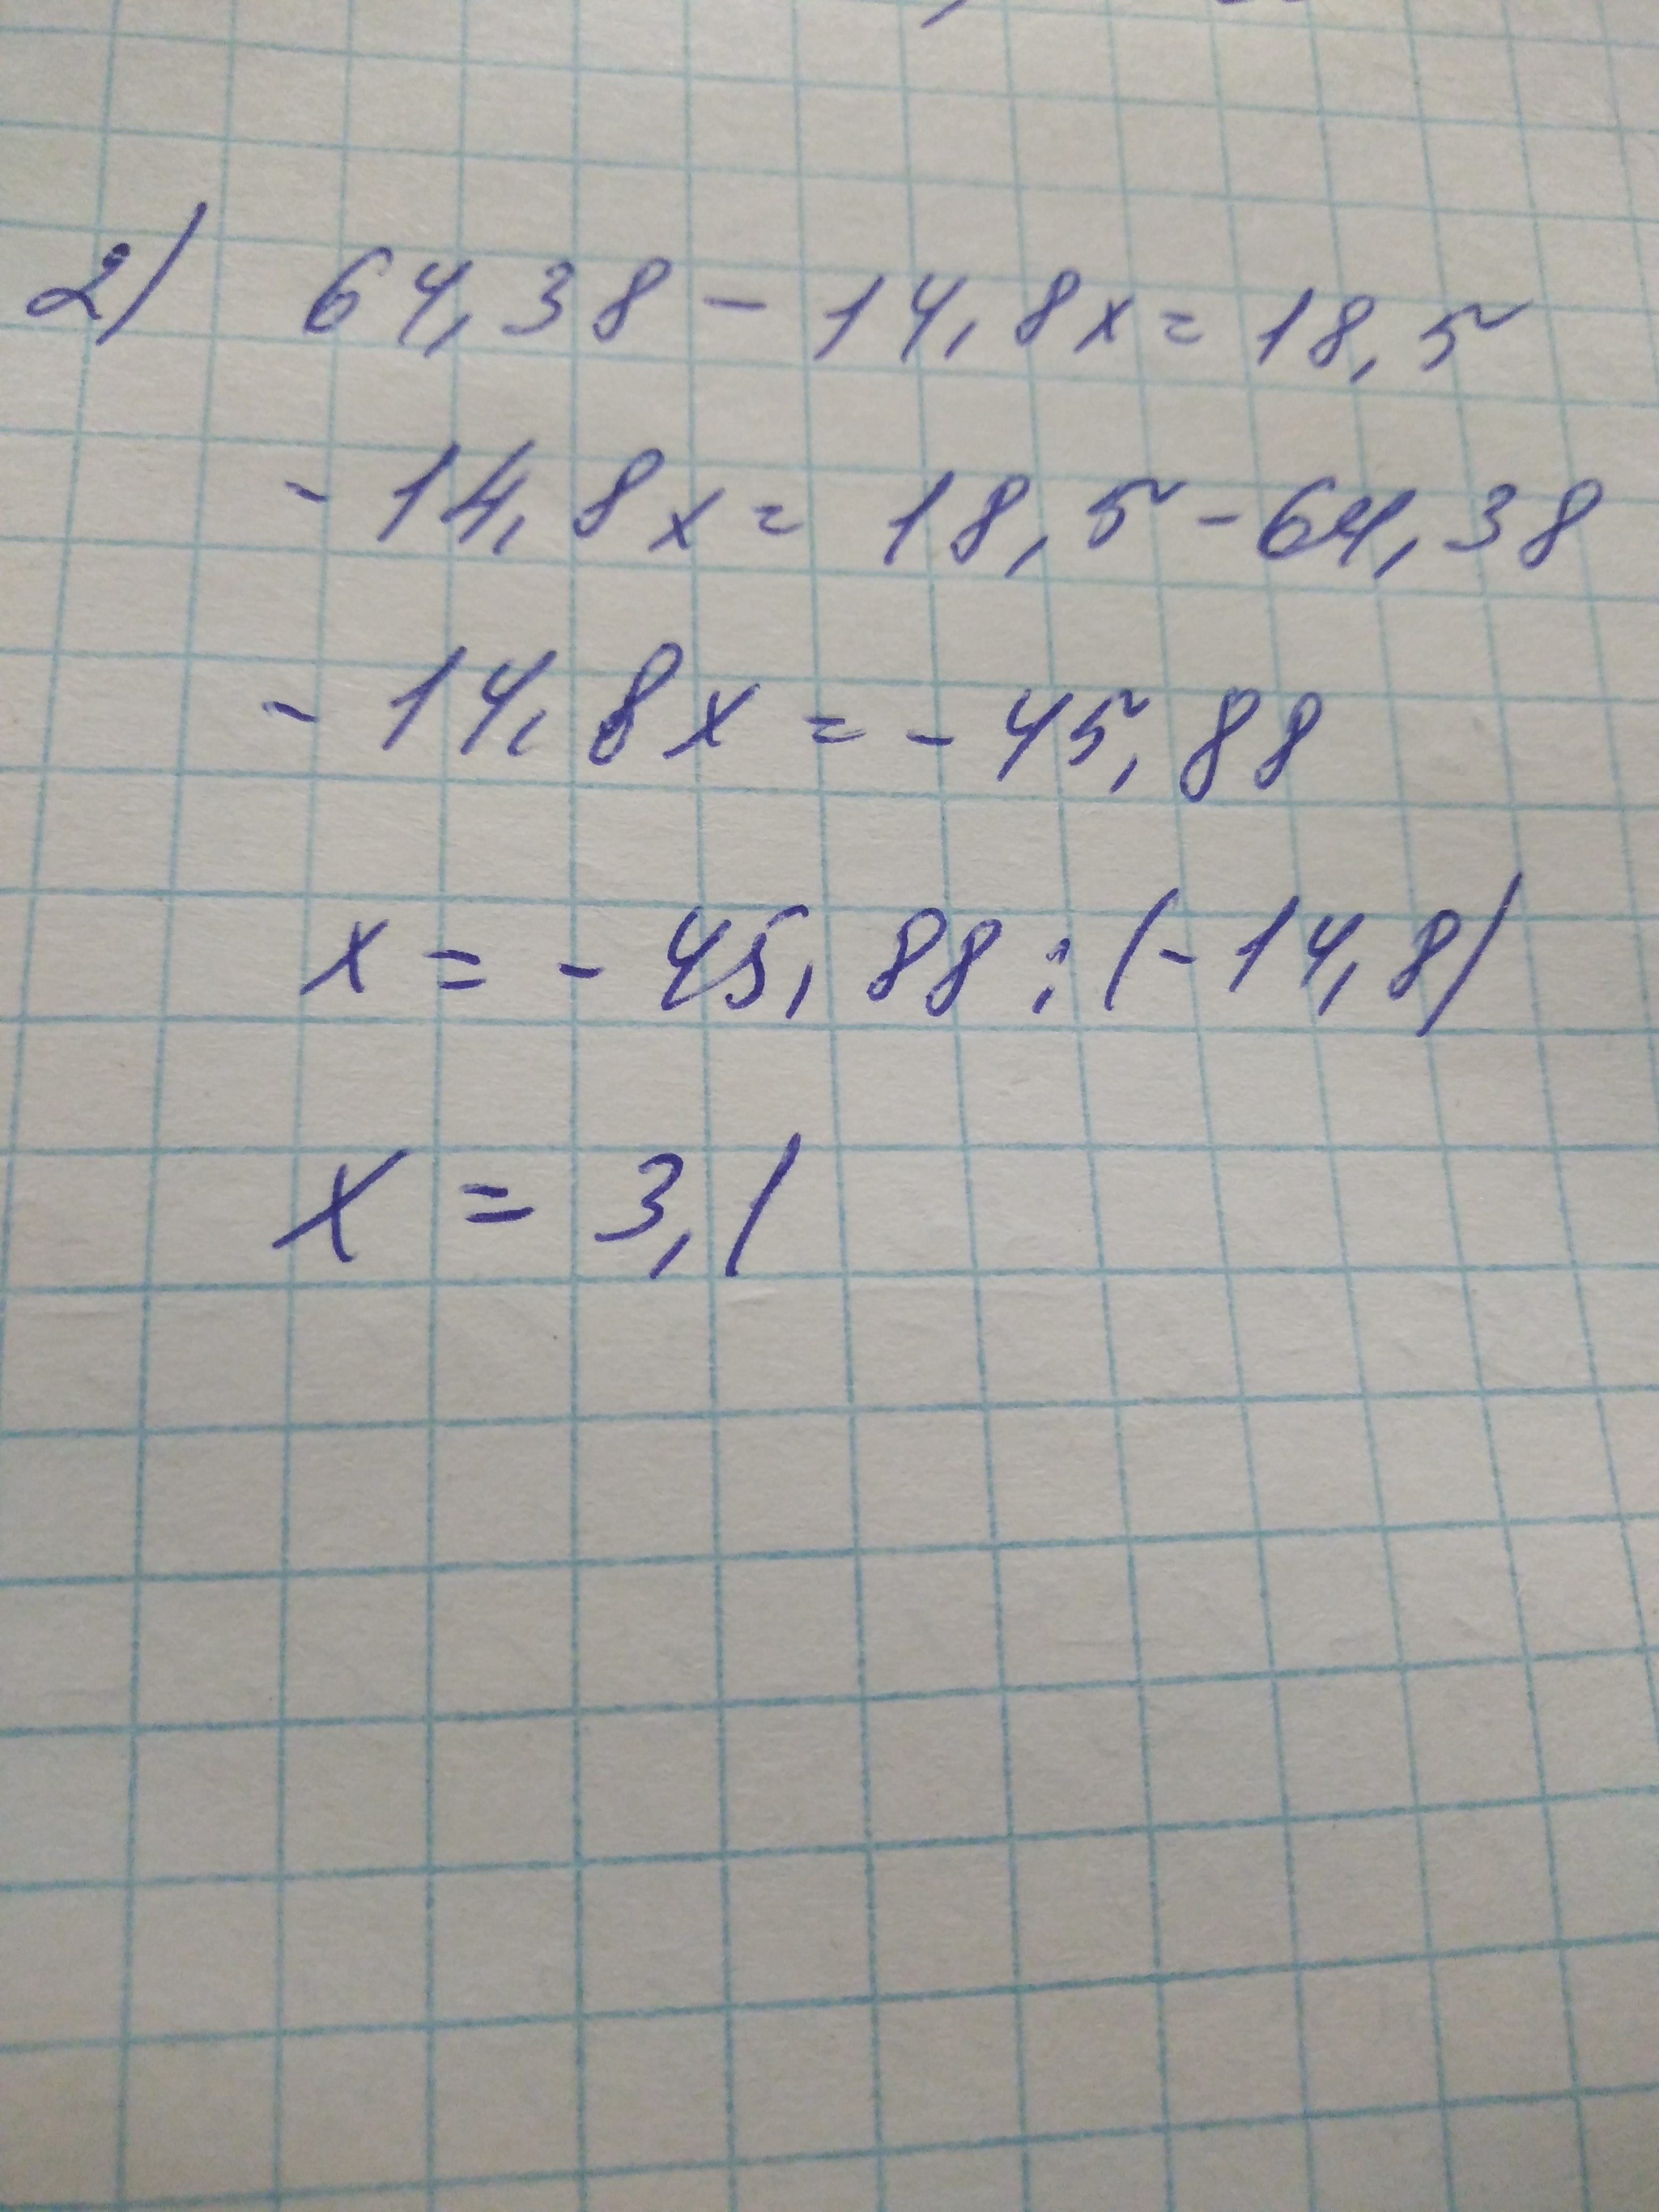 2) 64,38 - 14,8x = 18,5
- 14,8x = 18,5 - 64,38
- 14,8x = - 45,88
x = - 45,88 : (- 14,8)
x = 3,1